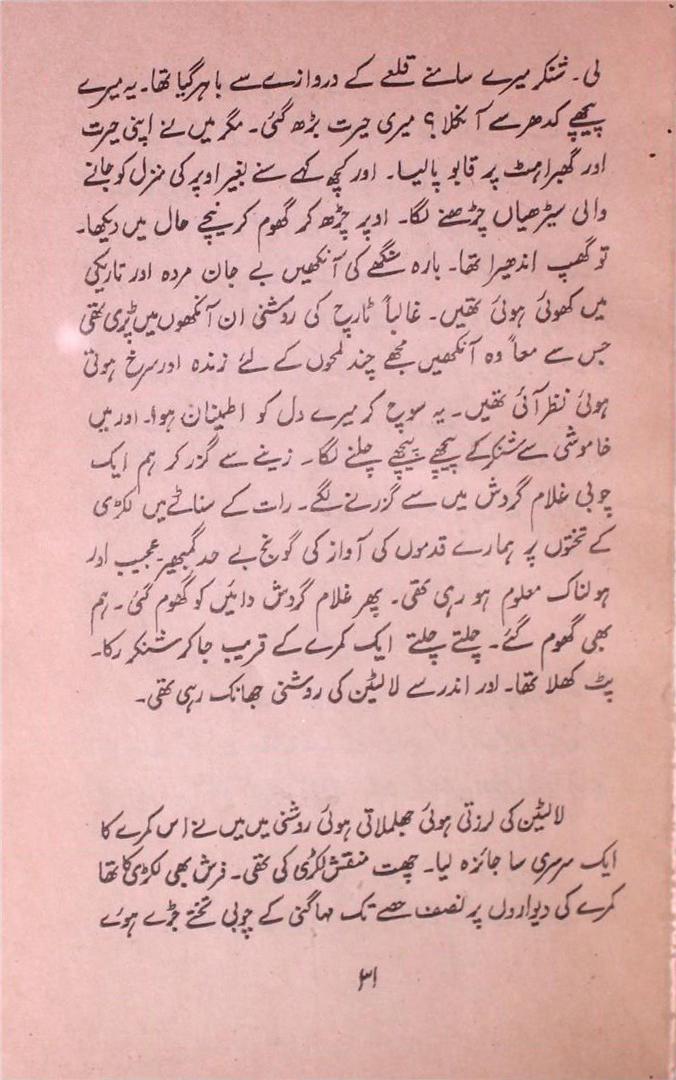 لی۔ شنکر میرے سامنے قلعے کے دروازے سے باہر گیا تھا۔ یہ میرے
پیچھے کدھر سے آ نکلا؟ میری حیرت بڑھ گئی۔ مگر میں نے اپنی حیرت
اور گھبراہٹ پر قابو پالیا۔ اور کچھ کہے سنے بغیر اوپر کی منزل کو جانے
والی سیڑھیاں چڑھنے لگا۔ اوپر چڑھ کر گھوم کر نیچے حال میں دیکھا۔
تو گھپ اندھیرا تھا۔ بارہ سنگھے کی آنکھیں بے جان مردہ اور تاریکی
میں کھوئی ہوئی تھیں۔ غالباً ٹارچ کی روشنی ان آنکھوں میں پڑی تھی
جس سے معاً وہ آنکھیں مجھے چند لمحوں کے لئے زندہ اور سرخ ہوتی
ہوئی نظر آئی تھیں۔ یہ سوچ کر میرے دل کو اطمینان ہوا۔ اور میں
خاموشی سے شنکر کے پیچھے پیچھے چلنے لگا۔ زینے سے گزر کر ہم ایک
چوبی غلام گردش میں سے گزرنے لگے۔ رات کے سناٹے میں لکڑی
کے تختوں پر ہمارے قدموں کی آواز کی گونج بے حد گمبھیر۔ عجیب اور
ہولناک معلوم ہو رہی تھی۔ پھر غلام گردش دائیں کو گھوم گئی۔ ہم
بھی گھوم گئے۔ چلتے چلتے ایک کمرے کے قریب جا کر شنکر رکا۔
پٹ کھلا تھا۔ اور اندر سے لالٹین کی روشنی جھانک رہی تھی۔
لالٹین کی لرزتی ہوئی جھلملاتی ہوئی روشنی میں میں نے اس کمرے کا
ایک سرسری سا جائزہ لیا۔ چھت منقش لکڑی کی تھی۔ فرش بھی لکڑی کا تھا
کمرے کی دیواروں پر نصف حصے تک مہاگنی کے چوبی تختے جڑے ہوئے
۳۱